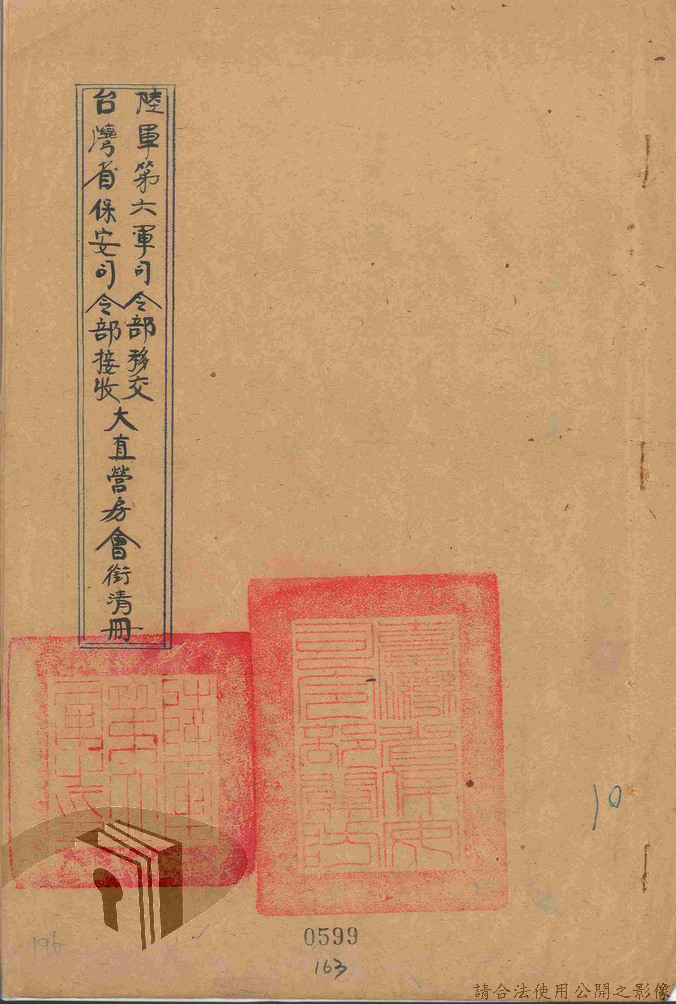 陸軍第六軍司令部移交
台灣省保安司令部接收
大直營房會銜清冊
臺灣省保安
司令部關防
10
0599
163
196
請合法使用公開之影像